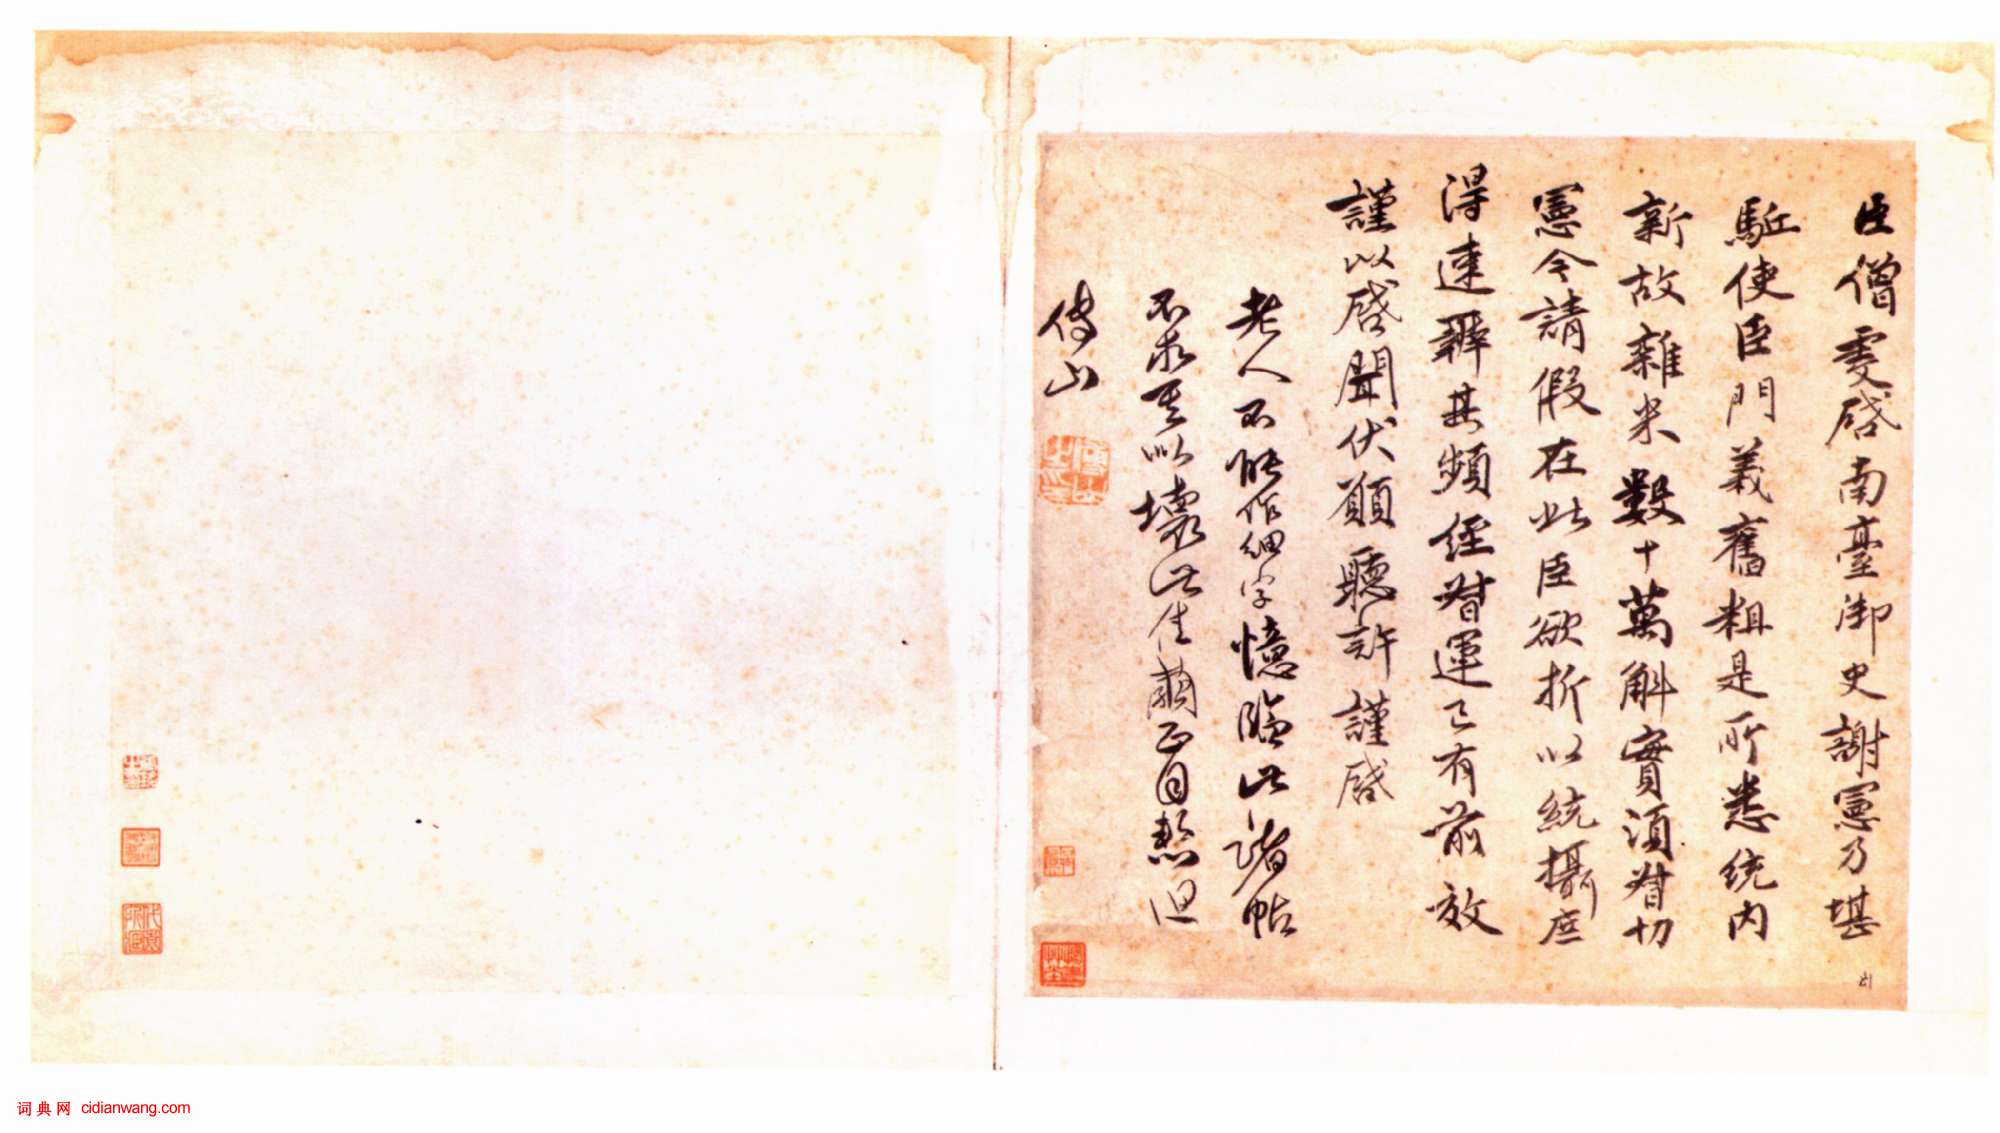 臣僧虔启南臺御史謝憲乃堪
駈使臣門義舊粗是所悉統内
新故雜米數十萬斛實須督切
憲令請假在此臣欲折以統攝庶
得速辦其頻經督運已有前效
謹以啓聞伏願聽許謹啓
老人不能作細字憶臨此諸帖
不求其似壞此生繭正自愁但
傅山
词典网 cidianwang.com